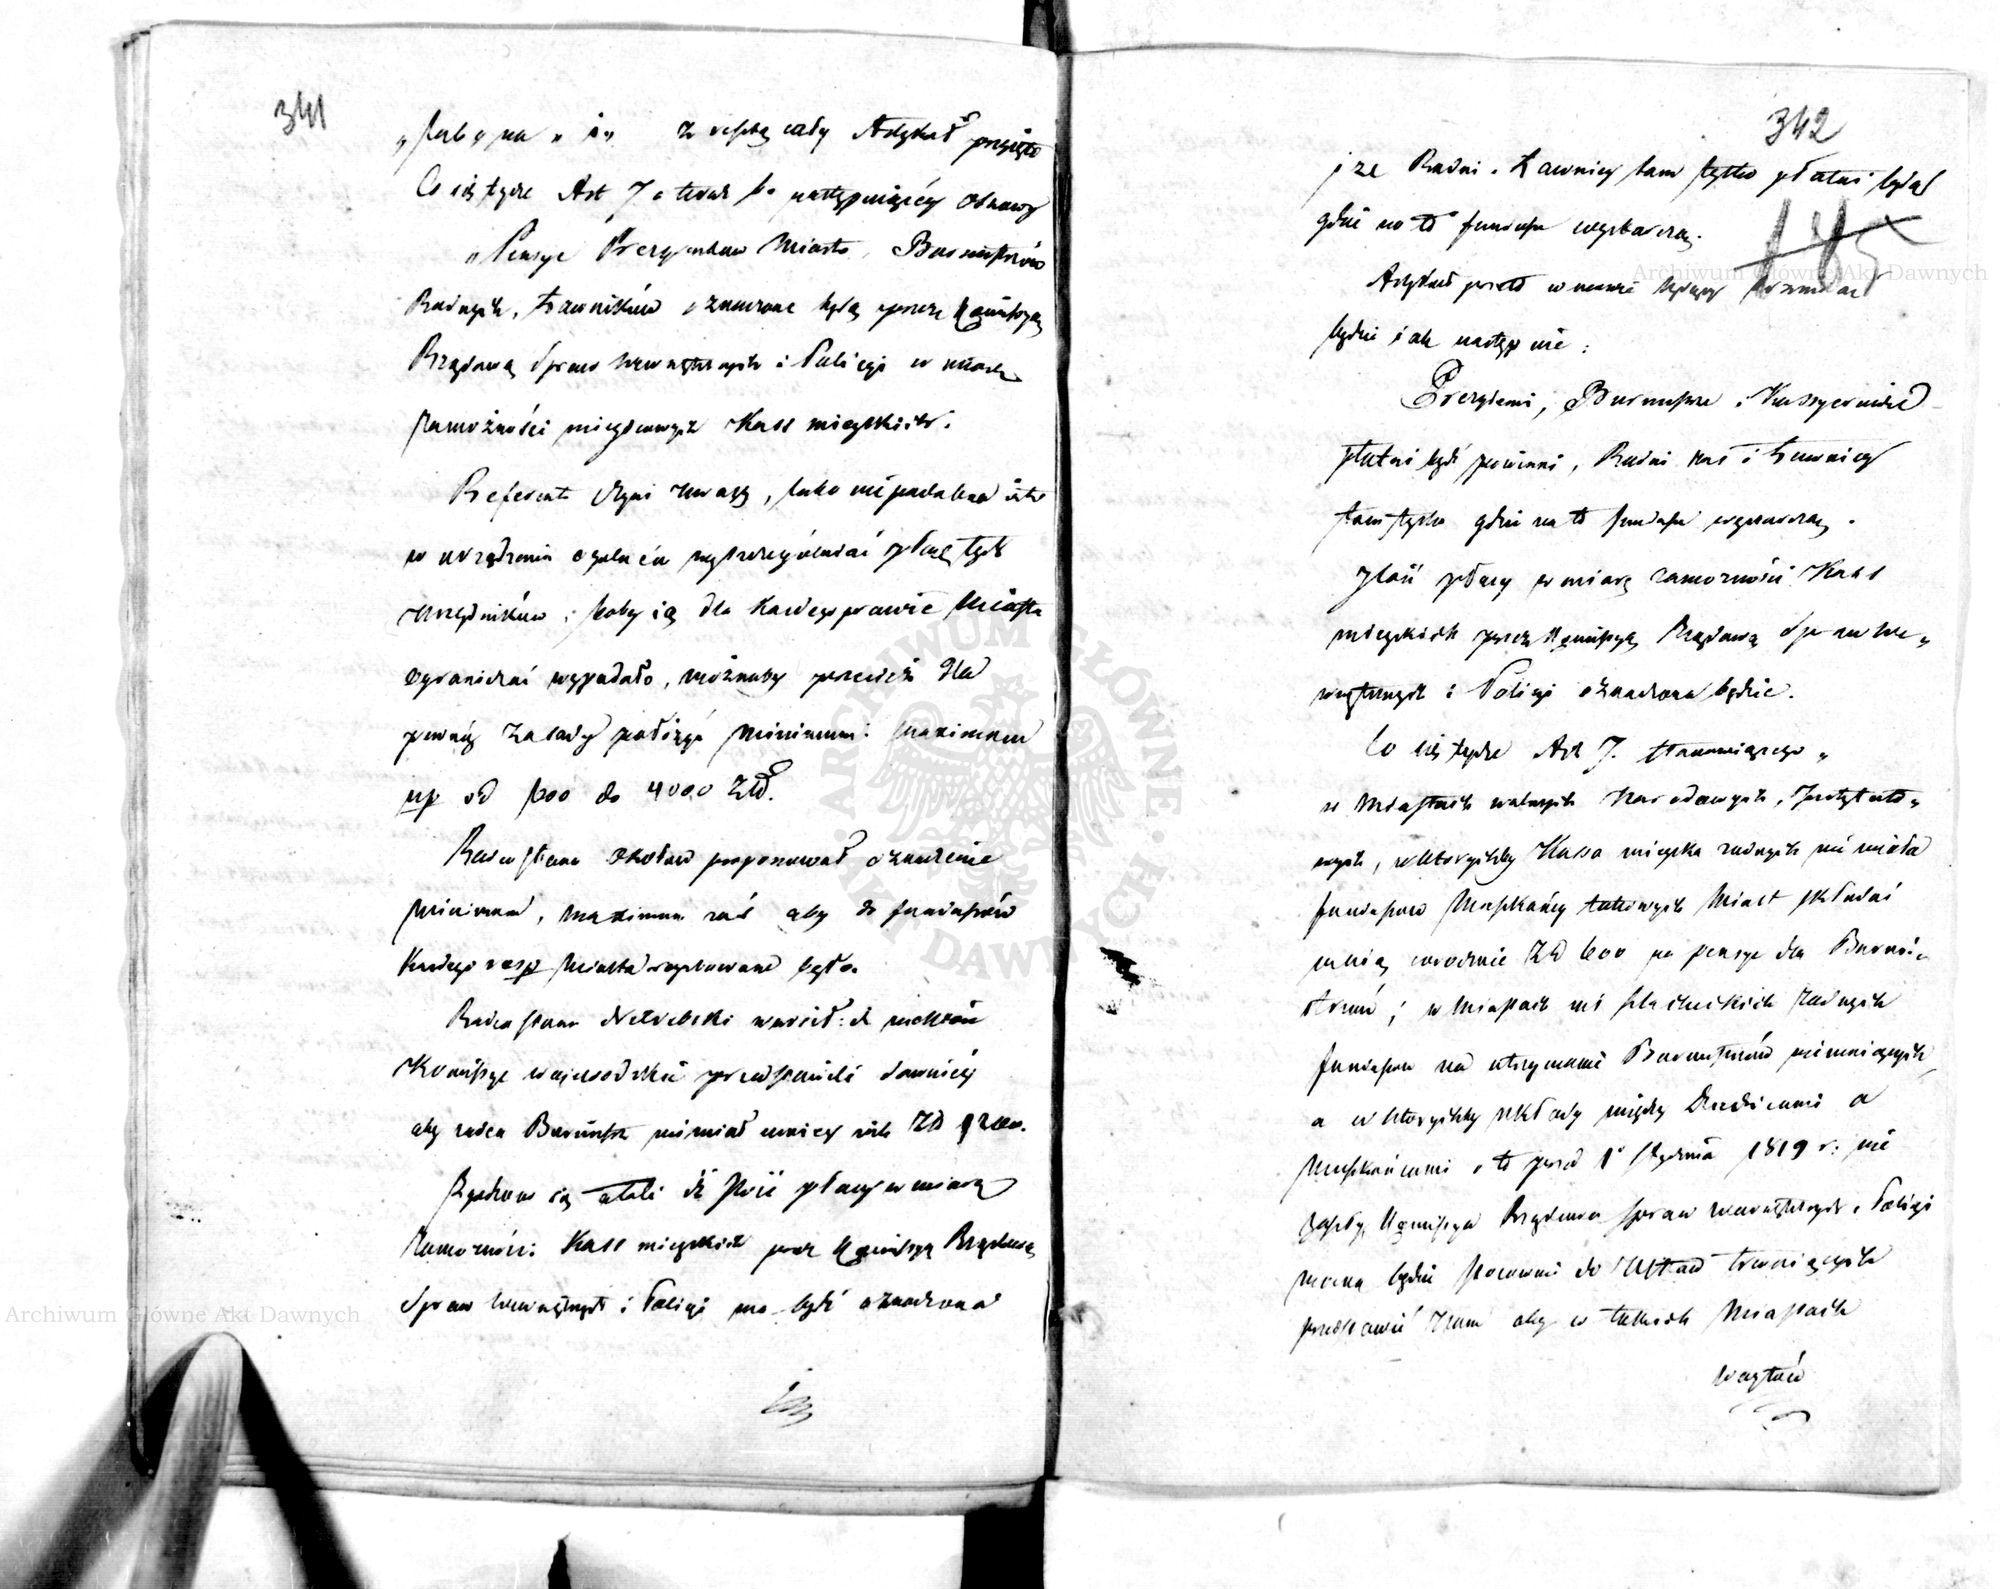 341
„lub„ na „ i„ zresztą cały Artykuł przyjęto
Co się tycze Art 7 o treści następującej osnowy
„Pensye Prezydentów Miasta, Burmistrzów
Radnych, Ławników oznaczone będą przez Kommissyą
Rządową Spraw Wewnętrznych i Policyi w miarę
zamożności miejscowych Kass mieyskich.
Referent czyni uwagę, jako niepodobna iest
w urządzeniu ogólnem wyszczególniać płacę tych
Urzędników; bo dla każdego prawie Miasta
ograniczać wypadało, możnaby przecież dla
pewnéy zasady położyć minimum i maximum
np od 600 do 4000 Złł.
Radca Stanu Okołow proponował oznaczenie
minimum, maximum zaś aby do funduszów
Każdego resp Miasta stosowane było.
Radca Stanu wnosił: iż niektóre
Kommissye Wojewódzkie przedstawiały dawniéy
aby żaden Burmistrz niemiał mniéy jak Zł 1200.
Zgodzono się atoli iż ilość płacy w miarę
Zamożności Kass mieyskich przez Kommissyą Rządową
Spraw Wewnętrznych i Policyi ma być oznaczona
342
i że Radni i Ławnicy tam tylko płatni będą
gdzie na to fundusz wystarczą.
145
Artykuł przeto w mowie będący brzmieć
będzie jak następuie:
Prezydenci, Burmistrze i Kassyerowie
płatni być powinni, Radni zaś i Ławnicy
tam tylko gdzie na to fundusz wystarczą.
Ilość płacy w miarę zamożności Kass
mieyskich przez Kommissyą Rządową Spraw We„
wnętrznych i Policyi oznaczona będzie.
Co się tycze Art 7. stanowiącego „
w Miastach wolnych Narodowych, Instytuto„
wych, w których by Kassa mieyska żadnych nie miała
funduszów Mieszkańcy takowych Miast składać
maią corocznie Zł 600 na pensye dla Burmi„
strzów; w Miastach zaś szlacheckich żadnych
funduszów na utrzymanie Burmistrzów niemaiących,
a w których by układy między Dziedzicami a
Mieszkańcami o to przed 1º Stycznia 1819 r: nie
zaszły, Kommissya Rządowa Spraw Wewnętrznych i Policyi
mocną będzie stosownie do
przedstawić Nam aby w takich Miastach